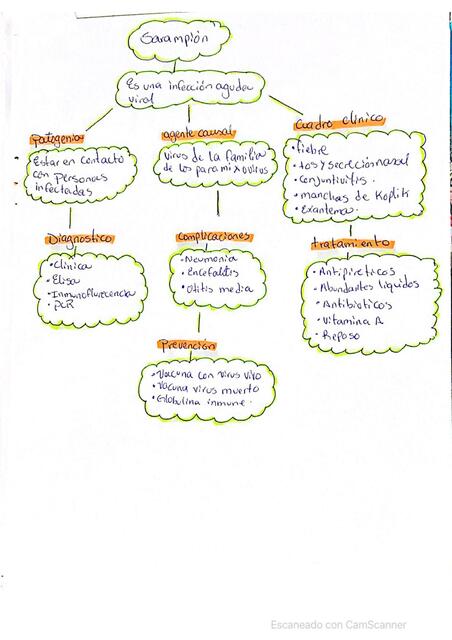 Sarampión
Es una infección aguda
viral
Patogenia
Estar en contacto
con personas
infectadas
agente causal
Virus de la familia
de los paramixovirus
Cuadro clinico
• fiebre
• tos y secreción nasal
• Conjuntivitis
• manchas de Koplik
• Exantema
Diagnostico
• Clínica
• Elisa
• PCR
Complicaciones
• Neumonia
• Encefalitis
• Otitis media
tratamiento
• Antipireticos
• Abundantes liquidos
• Antibioticos
• Vitamina A
• Reposo
Prevención
• Vacuna con virus vivo
• Vacuna virus muerto
• Globulina inmune.
Escaneado con CamScanner